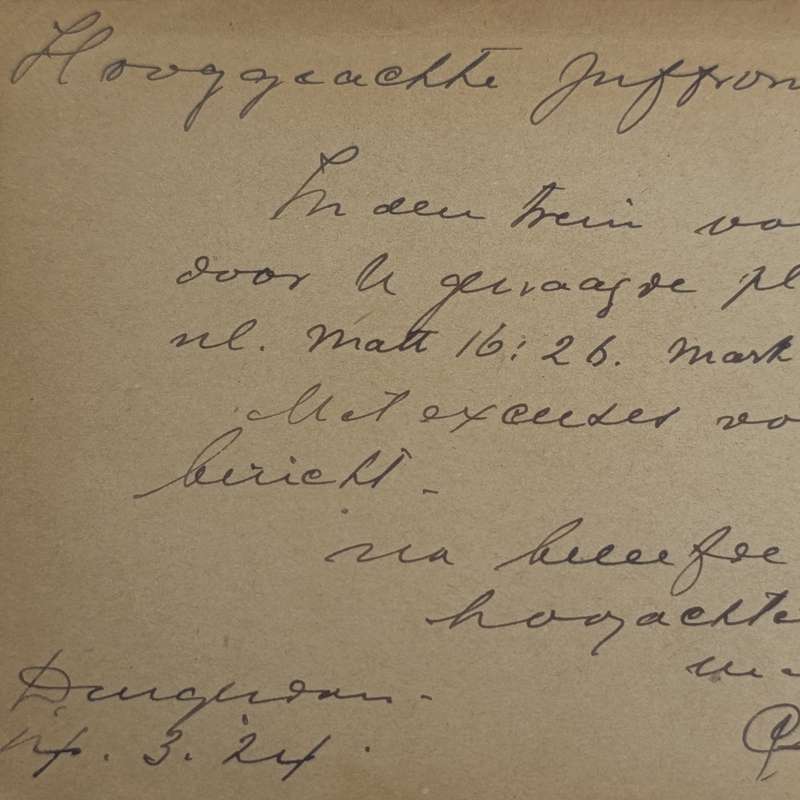 Hooggeachte Juffrou
In den trein vo
door U gevraagde pl
nl. Matt 16:26. Mark
Met excuses vo
bericht.
na beleefde
hoogachte
Durgerdam.
3.24.